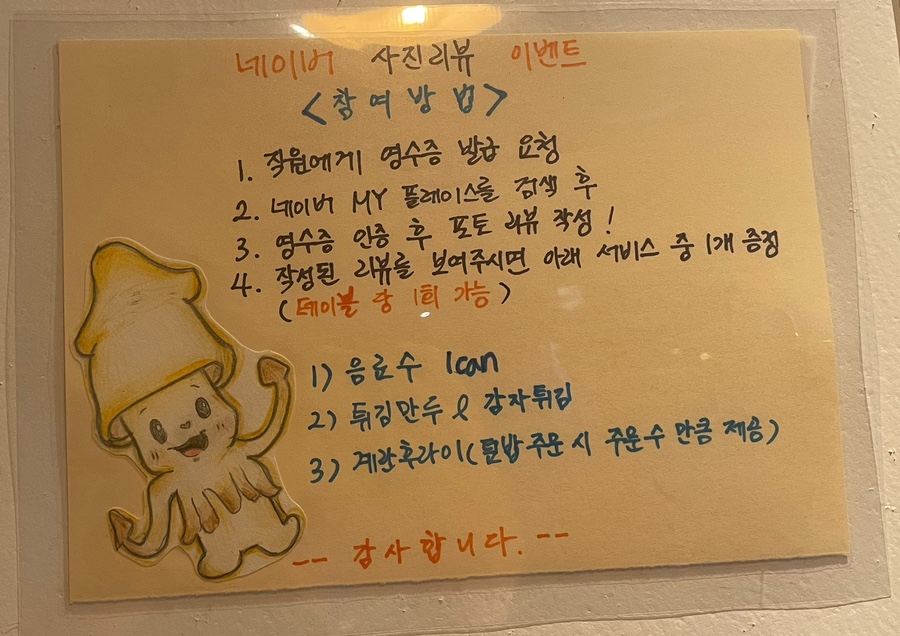 네이버 사진리뷰 이벤트
<참여방법>
1. 직원에게 영수증 발급 요청
2. 네이버 MY 플레이스를 검색 후
3. 영수증 인증 후 포토 리뷰 작성!
4. 작성된 리뷰를 보여주시면 아래 서비스 중 1개 증정
(테이블 당 1회 가능)
1) 음료수 1can
2) 튀김만두 & 감자튀김
3) 계란후라이(덮밥주문 시 주문수 만큼 제공)
-- 감사합니다. --